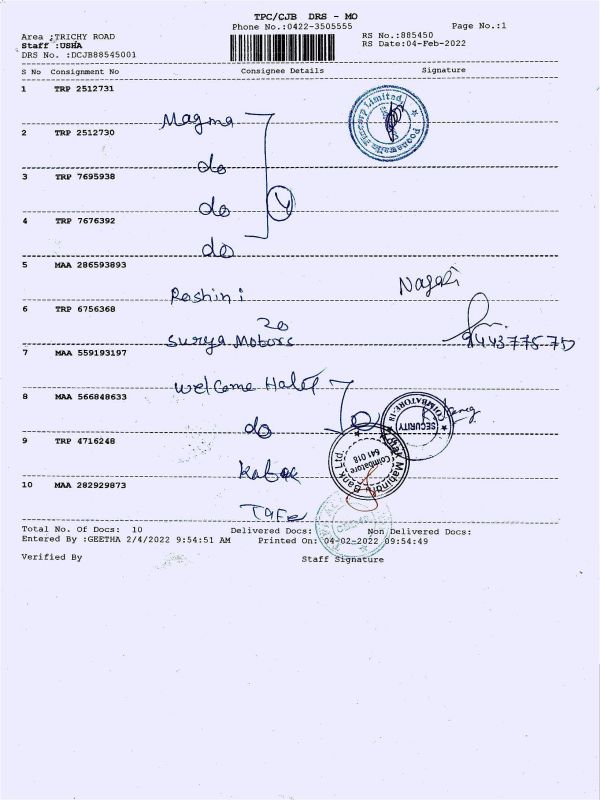 TPC/CJB DRS - MO
Phone No.:0422-3505555 Page No.:1
Area :TRICHY ROAD RS No.:885450
Staff :USHA RS Date:04-Feb-2022
DRS No. :DCJB88545001
S No Consignment No Consignee Details Signature
1 TRP 2512731
Magma
2 TRP 2512730
do
3 TRP 7695938
do
4 TRP 7676392
do
5 MAA 286593893
Roshini
6 TRP 6756368
20
Surya Motors
7 MAA 559193197
Welcome Hotel
8 MAA 566848633
do
9 TRP 4716248
Kotak
10 MAA 282929873
TAFE
Poonawalla Fincorp Limited
SECURITY
COIMBATORE-18
Kotak Mahindra Bank Ltd.
Coimbatore
641 018
Total No. Of Docs: 10 Delivered Docs: Non Delivered Docs:
Entered By :GEETHA 2/4/2022 9:54:51 AM Printed On: 04-02-2022 09:54:49
Verified By Staff Signature